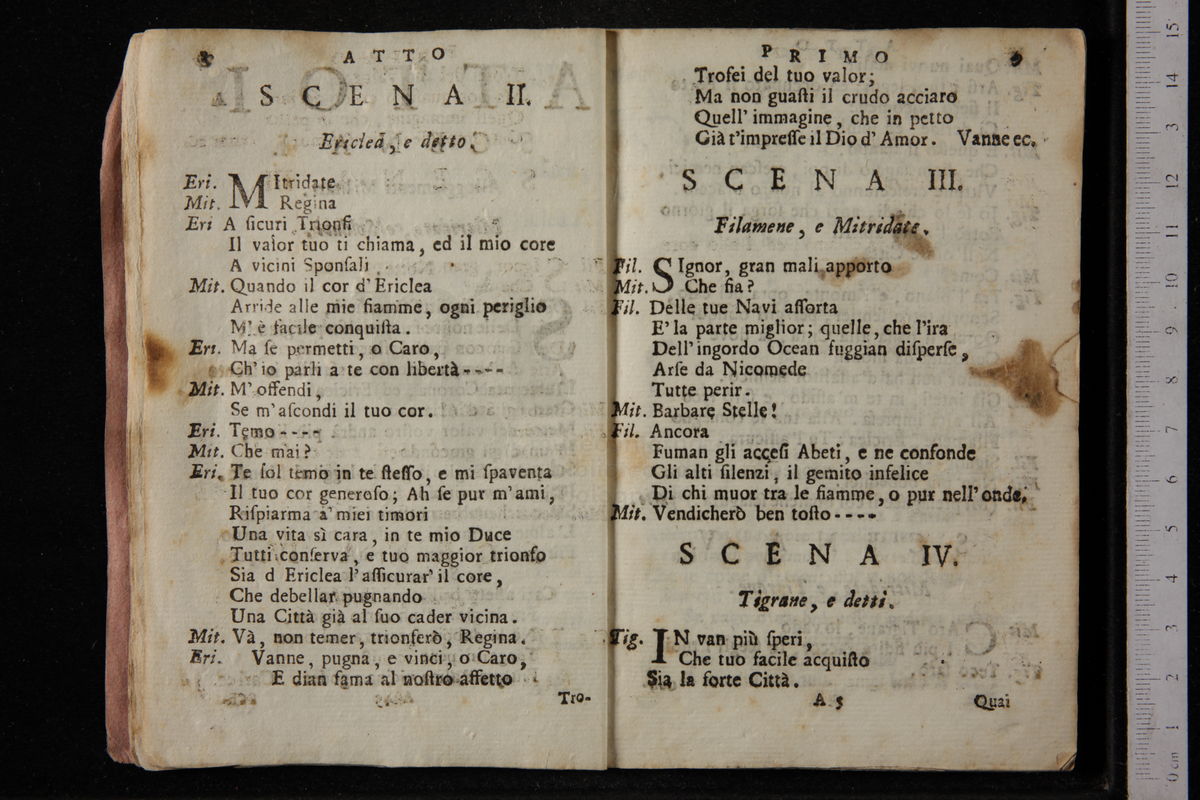 8 ATTO
SCENA II.
Ericlea, e detto.
Eri. MItridate
Mit. Regina
Eri A ſicuri Trionfi
Il valor tuo ti chiama, ed il mio core
A vicini Sponſali
Mit. Quando il cor d'Ericlea
Arride alle mie fiamme, ogni periglio
M' è facile conquiſta.
Eri. Ma ſe permetti, o Caro,
Ch'io parli a te con libertà----
Mit. M'offendi,
Se m'aſcondi il tuo cor.
Eri. Temo----
Mit. Che mai?
Eri. Te ſol temo in te ſteſſo, e mi ſpaventa
Il tuo cor generoſo; Ah ſe pur m'ami,
Riſpiarma a' miei timori
Una vita sì cara, in te mio Duce
Tutti conſerva, e tuo maggior trionfo
Sia d Ericlea l'aſſicurar' il core,
Che debellar pugnando
Una Città già al ſuo cader vicina.
Mit. Và, non temer, trionferò, Regina.
Eri. Vanne, pugna, e vinci, o Caro,
E dian fama al noſtro affetto
Tro-
PRIMO 9
Trofei del tuo valor;
Ma non guaſti il crudo acciaro
Quell' immagine, che in petto
Già t'impreſſe il Dio d'Amor. Vanne ec.
SCENA III.
Filamene, e Mitridate.
Fil. SIgnor, gran mali apporto
Mit. Che fia?
Fil. Delle tue Navi aſſorta
E' la parte miglior; quelle, che l'ira
Dell'ingordo Ocean fuggian diſperſe,
Arſe da Nicomede
Tutte perir.
Mit. Barbare Stelle!
Fil. Ancora
Fuman gli acceſi Abeti, e ne confonde
Gli alti ſilenzi, il gemito infelice
Di chi muor tra le fiamme, o pur nell'onde.
Mit. Vendicherò ben toſto----
SCENA IV.
Tigrane, e detti.
Tig. IN van più ſperi,
Che tuo facile acquiſto
Sia la forte Città.
A 5 Quai